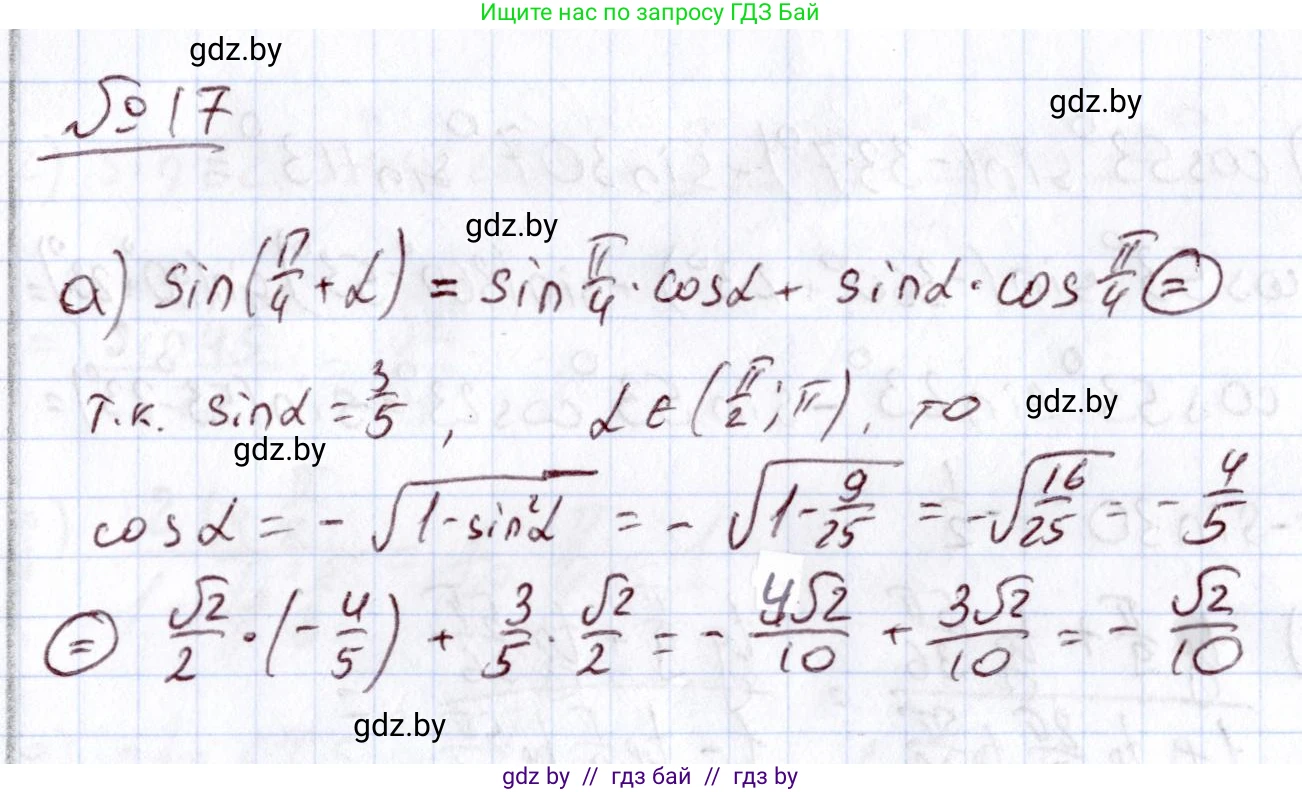 Ищите нас по запросу ГДЗ Бай
gdz.by
№ 17
gdz.by
gdz.by
а) sin(π/4 + α) = sin π/4 · cosα + sinα · cos π/4 ⊜
т.к. sinα = 3/5, α ∈ (π/2; π), то
gdz.by
gdz.by
cos α = - √(1 - sin²α) = - √(1 - 9/25) = - √(16/25) = - 4/5
⊜ √2/2 · (- 4/5) + 3/5 · √2/2 = - 4√2/10 + 3√2/10 = - √2/10
gdz.by
gdz by // гдз бай // гдз by